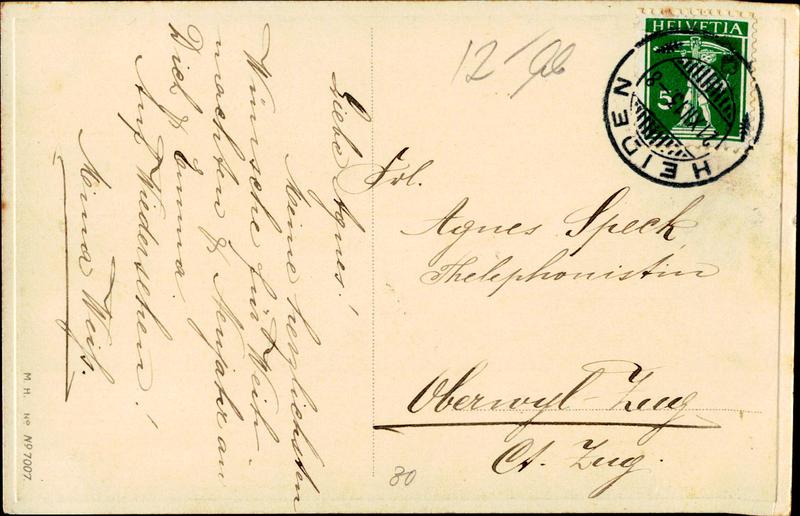 Liebe Agnes!
Meine herzlichsten
Wünsche für Weih-
nachten & Neujahr an
Dich & Emma
Auf Wiedersehen!
Anna Weiß.
M. H. No No 7007
12
30
Frl.
Agnes Speck
Thelephonistin
Oberwyl-Zug
Ct. Zug.
HELVETIA
5
HEIDEN